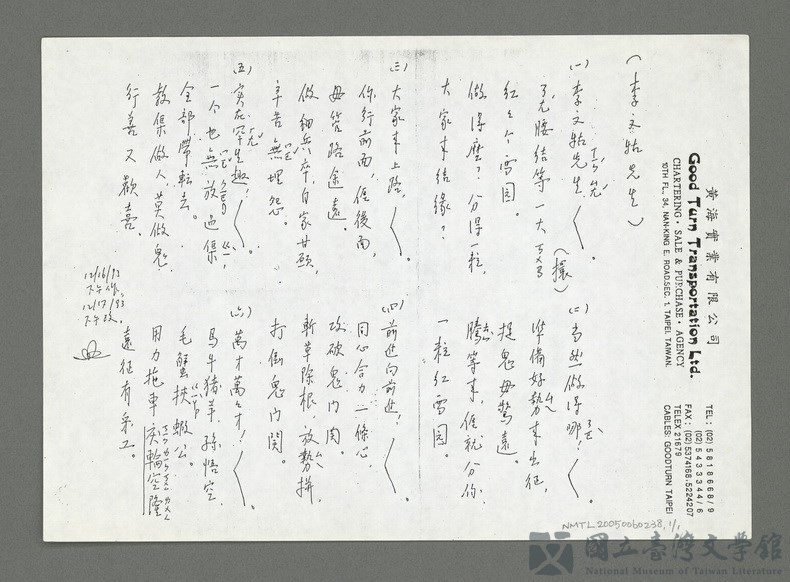 黃海實業有限公司
Good Turn Transportation Ltd.
CHARTERING・SALE & PURCHASE・AGENCY
10TH FL., 34, NAN-KING E. ROAD, SEC. 1, TAIPEI, TAIWAN.
TEL: (02) 5818668/9
(02) 5433344/6
FAX: (02) 5374168.5224207
TELEX 21679
CABLES: GOODTURN TAIPEI
(李文祜先生)
(一)李文祜先生,
腰結等一大
(攘)
紅紅个雪圓。
做得麼?分得一粒,
大家來結緣?
(二)當然做得哪!
準備好勢來出征,
捉鬼毋驚遠。
騰等來,𠊎就分你,
一粒紅雪圓。
(三)大家來上路,
你行前面,𠊎後面,
毋管路途遠。
做細兵卒,自家甘願,
辛苦無埋怨。
(四)前進向前進,
同心合力一條心,
攻破鬼門關。
斬草除根,放勢拼,
打倒鬼門關。
(五)實在罕趣,
一个也無放過集,
全部帶轉去。
教集做人莫做鬼,
行善又歡喜。
(六)萬才萬萬才!
馬牛豬羊孫悟空,
毛蟹挾蝦公。
用力拖車,輪空隆
遠征有采工。
12/16/93
下午作,
12/17/93,
下午改.
NMTL20050060238, 1/1
國立臺灣文學館
National Museum of Taiwan Literature